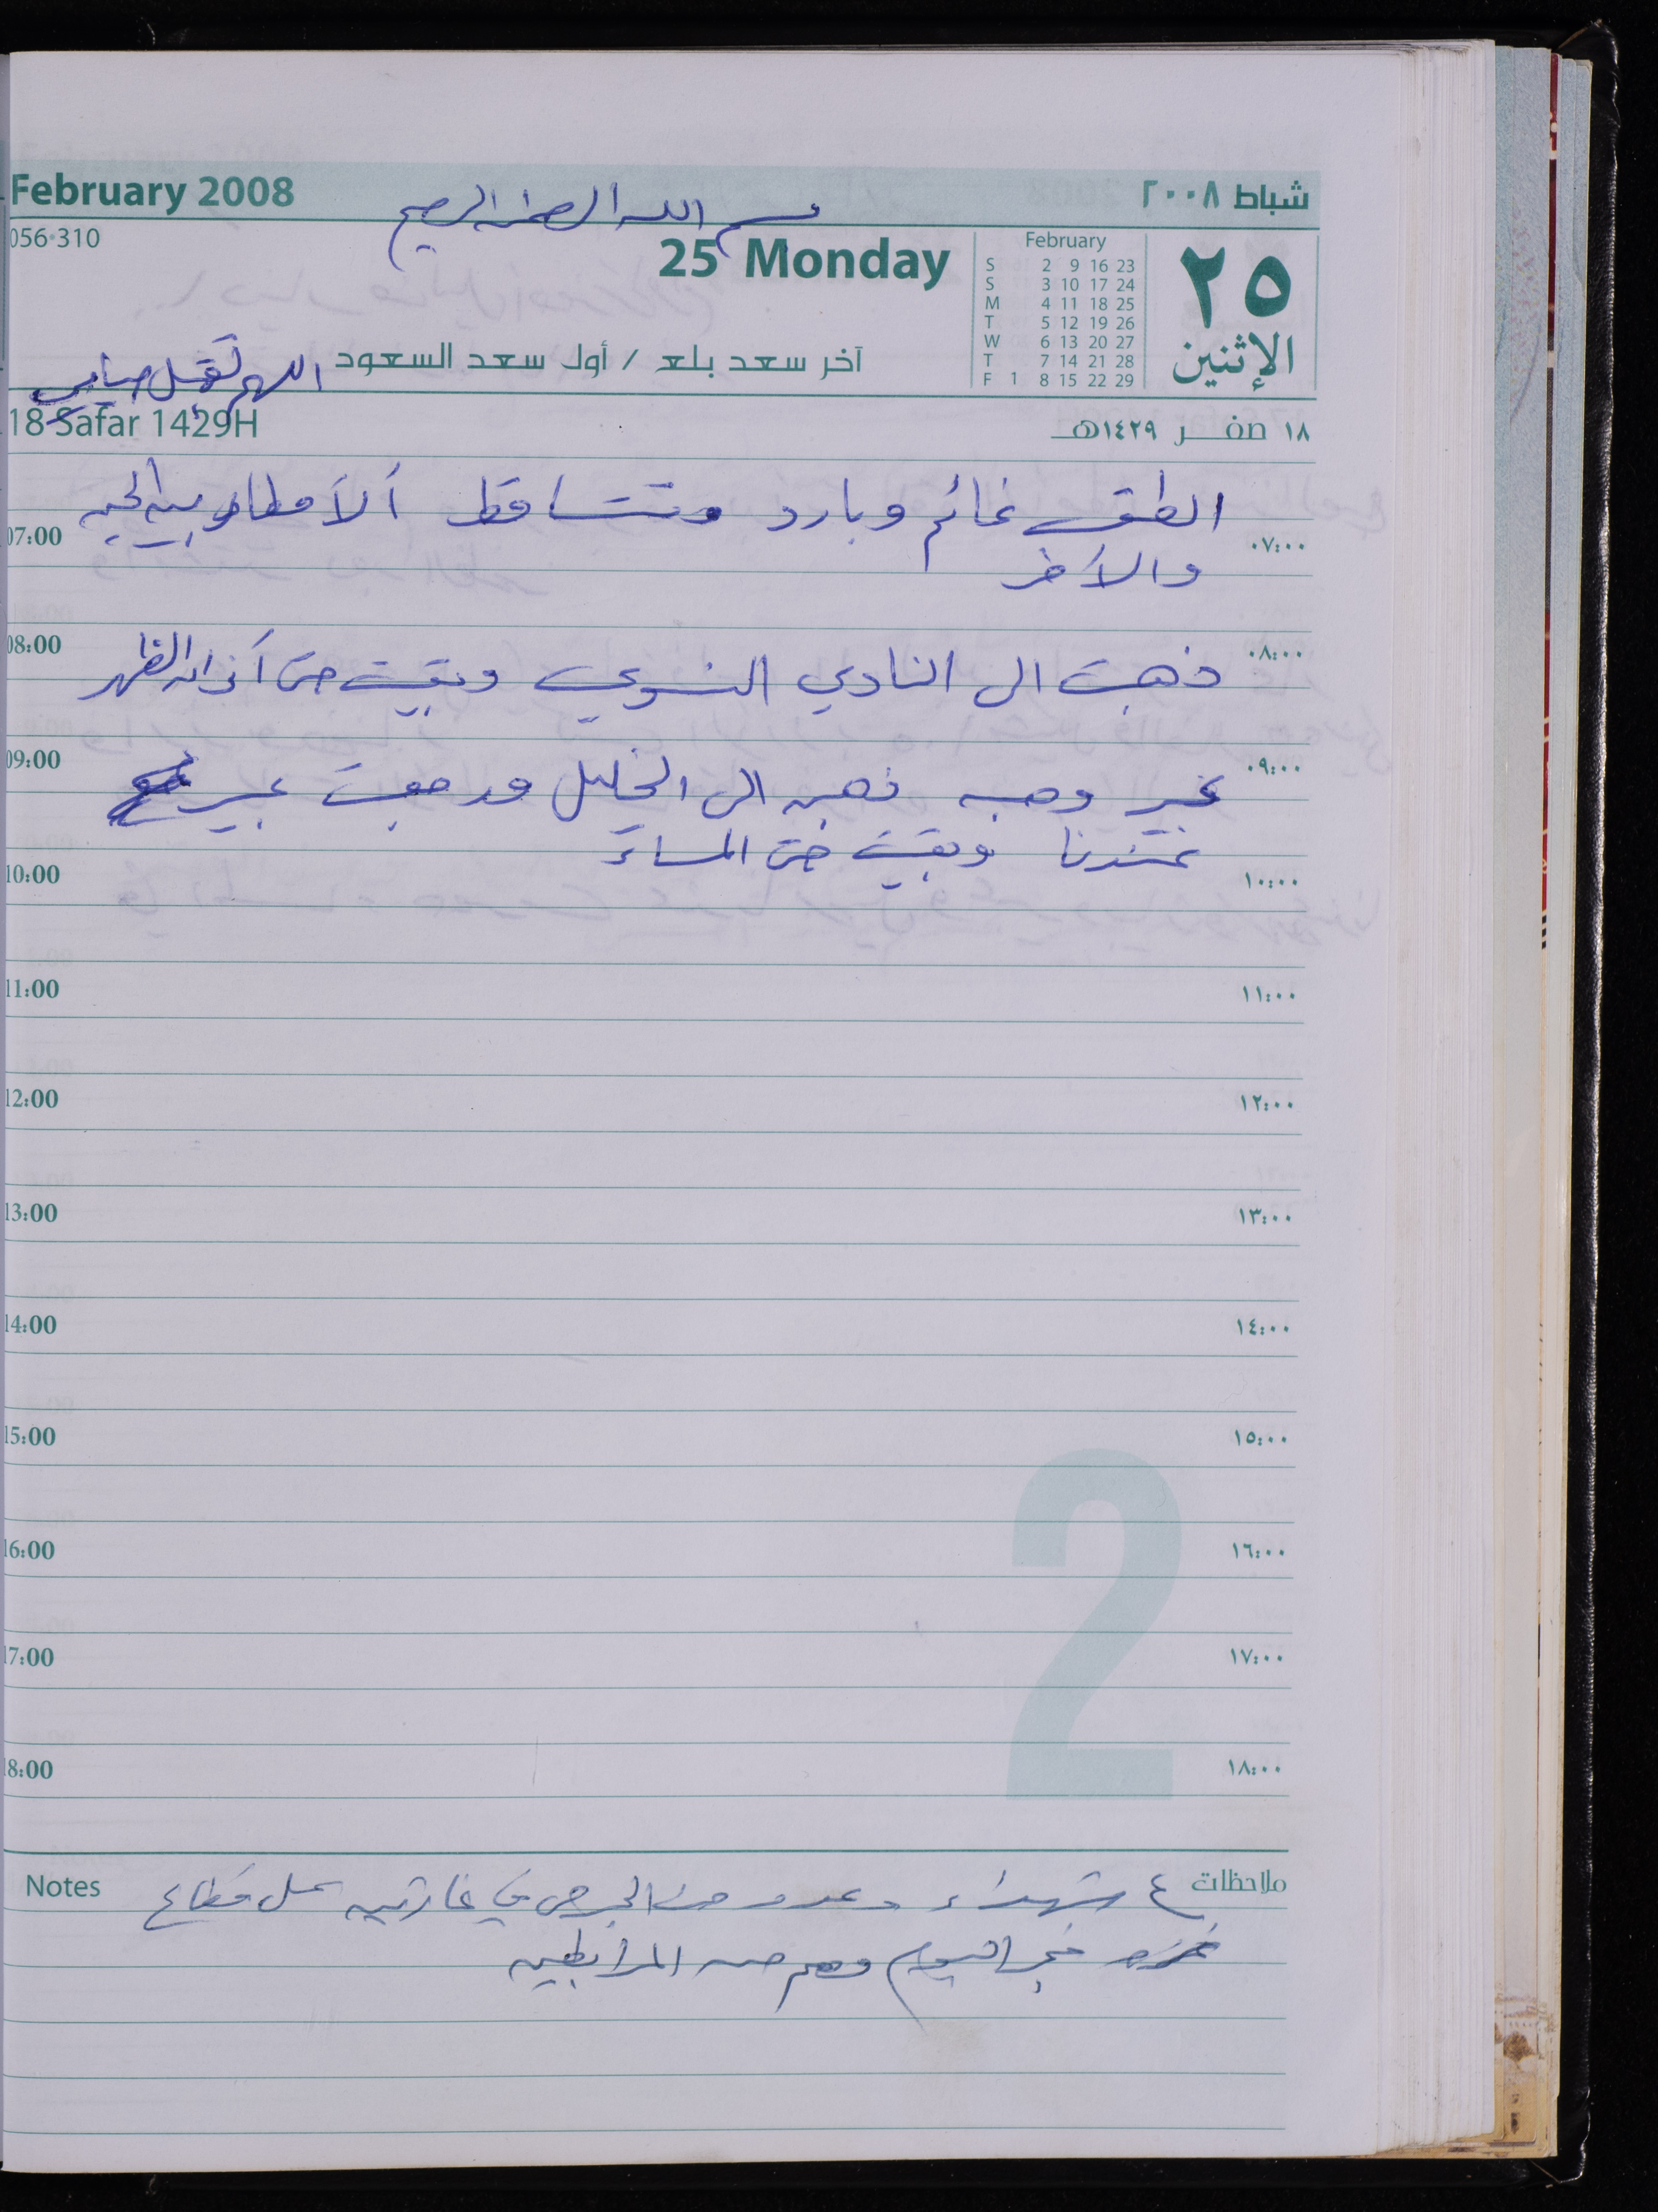 February 2008
بسم الله الرحمن الرحيم
شباط ٢٠٠٨
056-310
25 Monday
February
S 2 9 16 23
S 3 10 17 24
M 4 11 18 25
T 5 12 19 26
W 6 13 20 27
T 7 14 21 28
F 1 8 15 22 29
٢٥
الإثنين
آخر سعد بلع / أول سعد السعود
اللهم تقبل صيامي
18 Safar 1429H
١٨ صفر ١٤٢٩هـ
الطقس غائم وبارد وتتساقط ألأمطار بين الحين
07:00 ٠٧:٠٠
والأخر
08:00 ٠٨:٠٠
ذهبت الى النادي النسوي وبقيت حتى أذان الظهر
09:00 ٠٩:٠٠
عبير وهبه ذهبن الى الخليل ورجعت عبير
عندنا وبقيت حتى المساء
10:00 ١٠:٠٠
11:00 ١١:٠٠
12:00 ١٢:٠٠
13:00 ١٣:٠٠
14:00 ١٤:٠٠
15:00 ١٥:٠٠
16:00 ١٦:٠٠
17:00 ١٧:٠٠
2
18:00 ١٨:٠٠
Notes ملاحظات
٤ شهداء وعدد من الجرحى في غارتين على قطاع
غزه فجر اليوم وهم من المرابطين